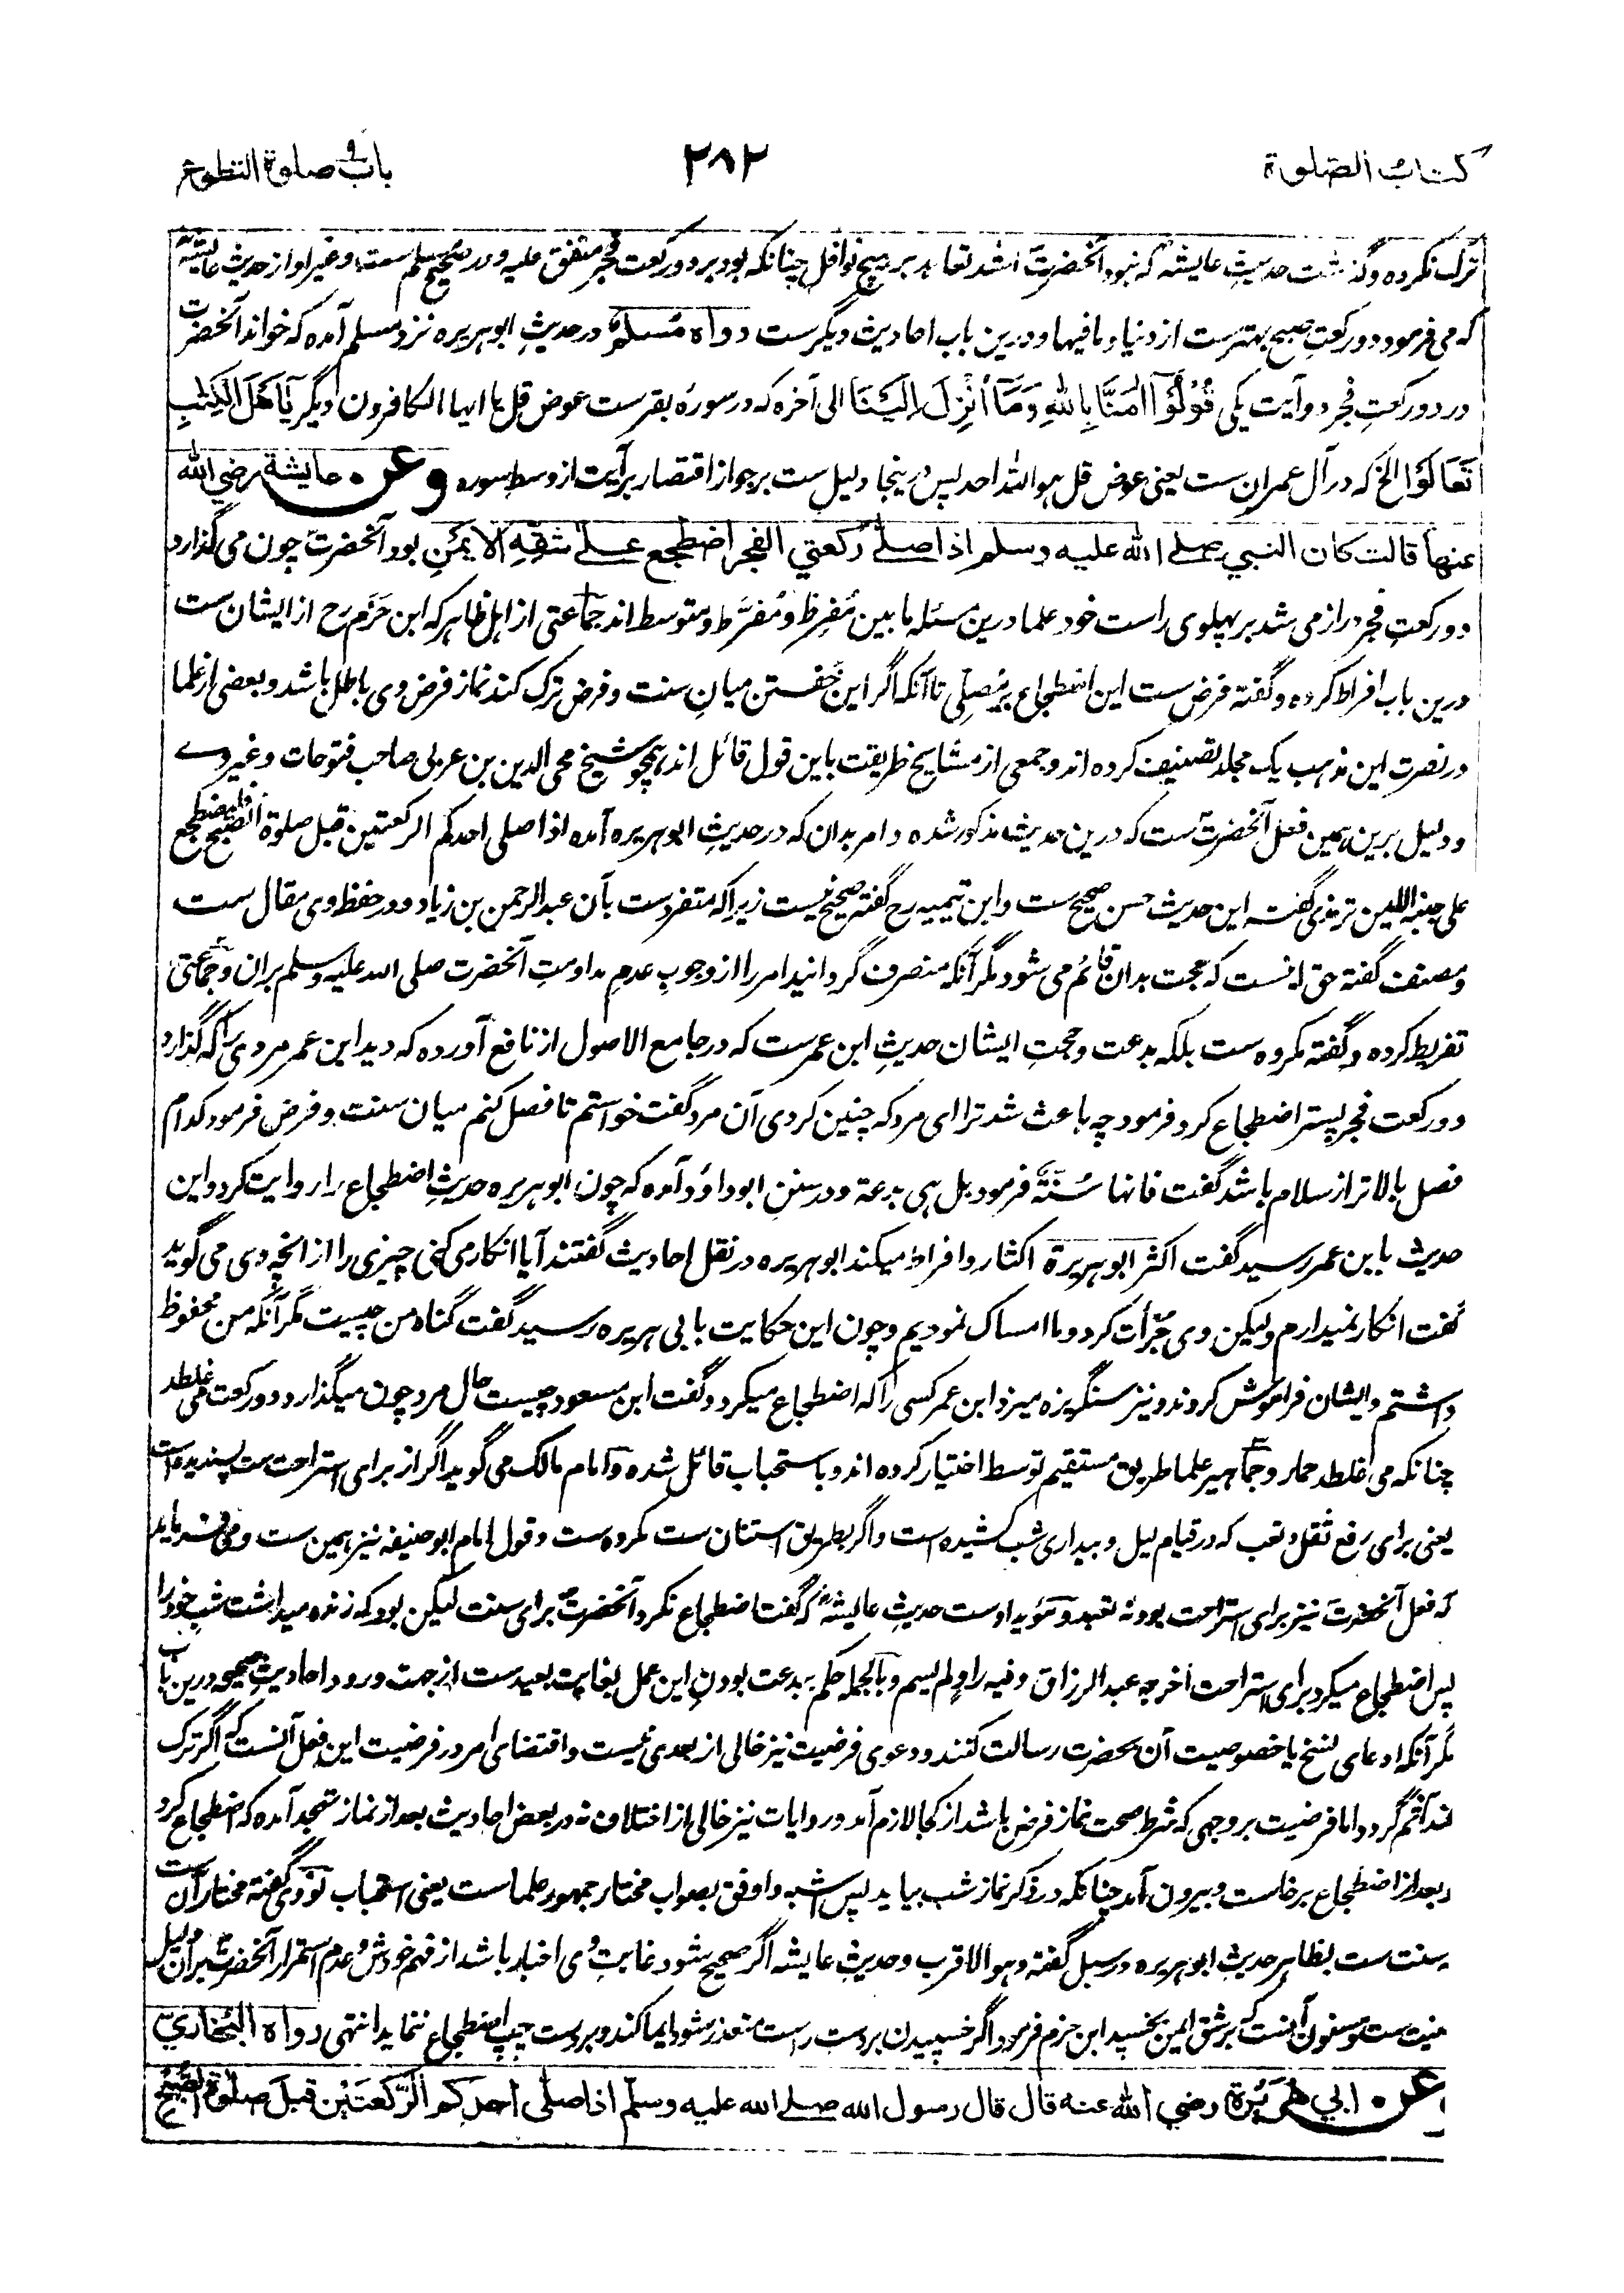 كتاب الصلوة
٢٨٢
باب في صلوة التطوع
ترک نکرده و گذشت حدیثِ عایشه که نبود آنحضرت اشد تعاهد بر هیچ نوافل چنانکه بود بر دو رکعت فجر متفق علیه و در صحیح مسلم ست و غیر او از حدیث عایشه
که می فرمود دو رکعت صبح بهترست از دنیا و ما فیها و درین باب احادیث دیگرست رواه مُسلم و در حدیثِ ابوهریره نزد مسلم آمده که خواند آنحضرت
در دو رکعتِ فجر دو آیت یکی قُوْلُوْٓا اٰمَنَّا بِاللهِ وَمَآ اُنْزِلَ اِلَیْنَا الی آخره که در سورهٔ بقرست عوض قل یا ایها الکافرون و دیگر یَآ اَهْلَ الْکِتٰبِ
تَعَالَوْا الخ که در آل عمران ست یعنی عوض قل هو الله احد پس درینجا دلیل ست بر جواز اقتصار بر آیت از وسط سوره وعن عايشة رضي الله
عنها قالت كان النبي صلى الله عليه وسلم اذا صلى ركعتي الفجر اضطجع على شقه الايمن بود آنحضرت چون می گذارد
دو رکعتِ فجر دراز می شد بر پهلوی راست خود علما درین مسئله ما بین مُفرِط و مُفرِّط و متوسط اند جماعتی از اهل ظاهر که ابن حَزم رح از ایشان ست
درین باب افراط کرده و گفته فرض ست این اضطجاع بر مُصلّی تا آنکه اگر این خفتن میانِ سنت و فرض ترک کند نماز فرض وی باطل باشد و بعضی از علما
در نصرتِ این مذهب یک مجلد تصنیف کرده اند و جمعی از مشایخ طریقت باین قول قائل اند همچو شیخ محی الدین بن عربی صاحب فتوحات و غیر وے
و دلیل برین همین فعل آنحضرت ست که درین حدیث مذکور شده و امر بدان که در حدیثِ ابوهریره آمده اذا صلی احدکم الرکعتین قبل صلوة الصبح فلیضطجع
علی جنبه الایمن ترمذی گفته این حدیث حسن صحیح ست و ابن تیمیه رح گفته صحیح نیست زیراکه متفردست بآن عبدالرحمن بن زیاد و در حفظ وی مقال ست
و مصنف گفته حق آنست که حجت بدان قائم می شود مگر آنکه منصرف گردانید امر را از وجوبِ عدمِ مداومتِ آنحضرت صلی الله علیه وسلم بران و جماعتی
تفریط کرده و گفته مکروه ست بلکه بدعت و حجتِ ایشان حدیثِ ابن عمرست که در جامع الاصول از نافع آورده که دید ابن عمر مردی را که گذارد
دو رکعت فجر پستر اضطجاع کرد فرمود چه باعث شد ترا ای مرد که چنین کردی آن مرد گفت خواستم تا فصل کنم میان سنت و فرض فرمود کدام
فصل بالاتر از سلام باشد گفت فانها سُنّة فرمود بل هی بدعة و در سنن ابوداؤد آمده که چون ابوهریره حدیثِ اضطجاع را روایت کرد و این
حدیث بابن عمر رسید گفت اکثر ابوهریرة اکثار و افراط میکند ابوهریره در نقل احادیث گفتند آیا انکار می کنی چیزی را از انچه وی می گوید
گفت انکار نمیدارم ولیکن وی جُرأت کرد و ما امساک نمودیم و چون این حکایت بابی هریره رسید گفت گناه من چیست مگر آنکه من محفوظ
داشتم و ایشان فراموش کردند و نیز سنگریزه میزد ابن عمر کسی را که اضطجاع میکرد و گفت ابن مسعود چیست حال مرد چون میگذارد دو رکعت می غلطد
چنانکه می غلطد حمار و جماهیر علما طریق مستقیم توسط اختیار کرده اند و باستحباب قائل شده و امام مالک می گوید اگر از برای استراحت ست پسندیده است
یعنی برای رفع ثقل و تعب که در قیام لیل و بیداری شب کشیده است و اگر بطریق استنان ست مکروه ست و قول امام ابوحنیفه نیز همین ست و می فرماید
که فعل آنحضرت نیز برای استراحت بود نه تعبد و مؤید اوست حدیثِ عایشه که گفت اضطجاع نکرد آنحضرت برای سنت لیکن بود که زنده میداشت شب خود را
پس اضطجاع میکرد برای استراحت اخرجه عبدالرزاق و فیه راوٍ لم یسم و بالجمله حکم ببدعت بودنِ این عمل بغایت بعیدست از جهت ورود احادیثِ صحیحه درین باب
مگر آنکه ادعای نسخ یا خصوصیت آن بحضرت رسالت کنند و دعوی فرضیت نیز خالی از بعدی نیست و اقتضای امر در فرضیت این فعل آنست که اگر ترک
کند آثم گردد اما فرضیت بر وجهی که شرط صحت نماز فرض باشد از کجا لازم آمد و روایات نیز خالی از اختلاف نه در بعض احادیث بعد از نماز تهجد آمده که اضطجاع کرد
و بعد از اضطجاع برخاست و بیرون آمد چنانکه در ذکر نماز شب بیاید پس اشبه و اوفق بصواب مختار جمهور علماست یعنی استحباب نووی گفته مختار آن ست
سنت ست بظاهر حدیثِ ابوهریره در سبل گفته و هو الاقرب و حدیثِ عایشه اگر صحیح شود غایتِ وی اخبار باشد از فهم خودش و عدم استمرار آنحضرت بران دلیل
سنیت ست و مسنون آنست که بر شق ایمن بخسپد ابن حزم فرمود اگر خسپیدن بر دست راست متعذر شود ایما کند و بر دست چپ اضطجاع ننماید انتهی رواه البخاري
عن ابي هريرة رضي الله عنه قال قال رسول الله صلى الله عليه وسلم اذا صلى احدكم الركعتين قبل صلوة الصبح